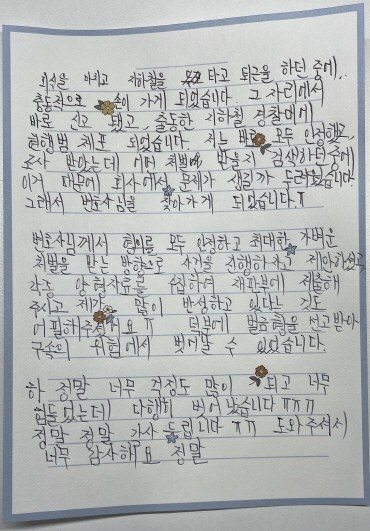 회식을 마치고 지하철을 타고 퇴근을 하던 중에,
충동적으로 손이 가게 되었습니다. 그 자리에서
바로 신고 됐고, 출동한 지하철 경찰에게
현행범 체포 되었습니다. 저는 모두 인정했고,
조사 받았는데 어떤 처벌을 받을지 검색하던 중에
이거 때문에 회사에서 문제가 생길까 두려웠습니다.
그래서 변호사님을 찾아가게 되었습니다.ㅠ
변호사님께서 혐의를 모두 인정하고 최대한 가벼운
처벌을 받는 방향으로 사건을 진행하자고 제안하셨고,
각종 양형자료를 수집하여 재판부에 제출해
주시고 제가 많이 반성하고 있다는 것도
어필해주셔서요ㅠ 덕분에 벌금형을 선고받아
구속의 위험에서 벗어날 수 있었습니다.
하 정말 너무 걱정도 많이 되고 너무
힘들었는데 다행히 벗어났습니다ㅠㅠㅠ
정말 정말 감사드립니다ㅠㅠ 도와주셔서
너무 감사해요 정말